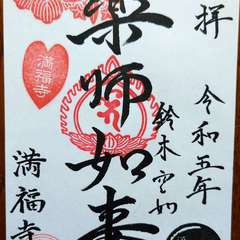 奉拝
令和五年
鈴木空如
薬師如来
満福寺
満福寺